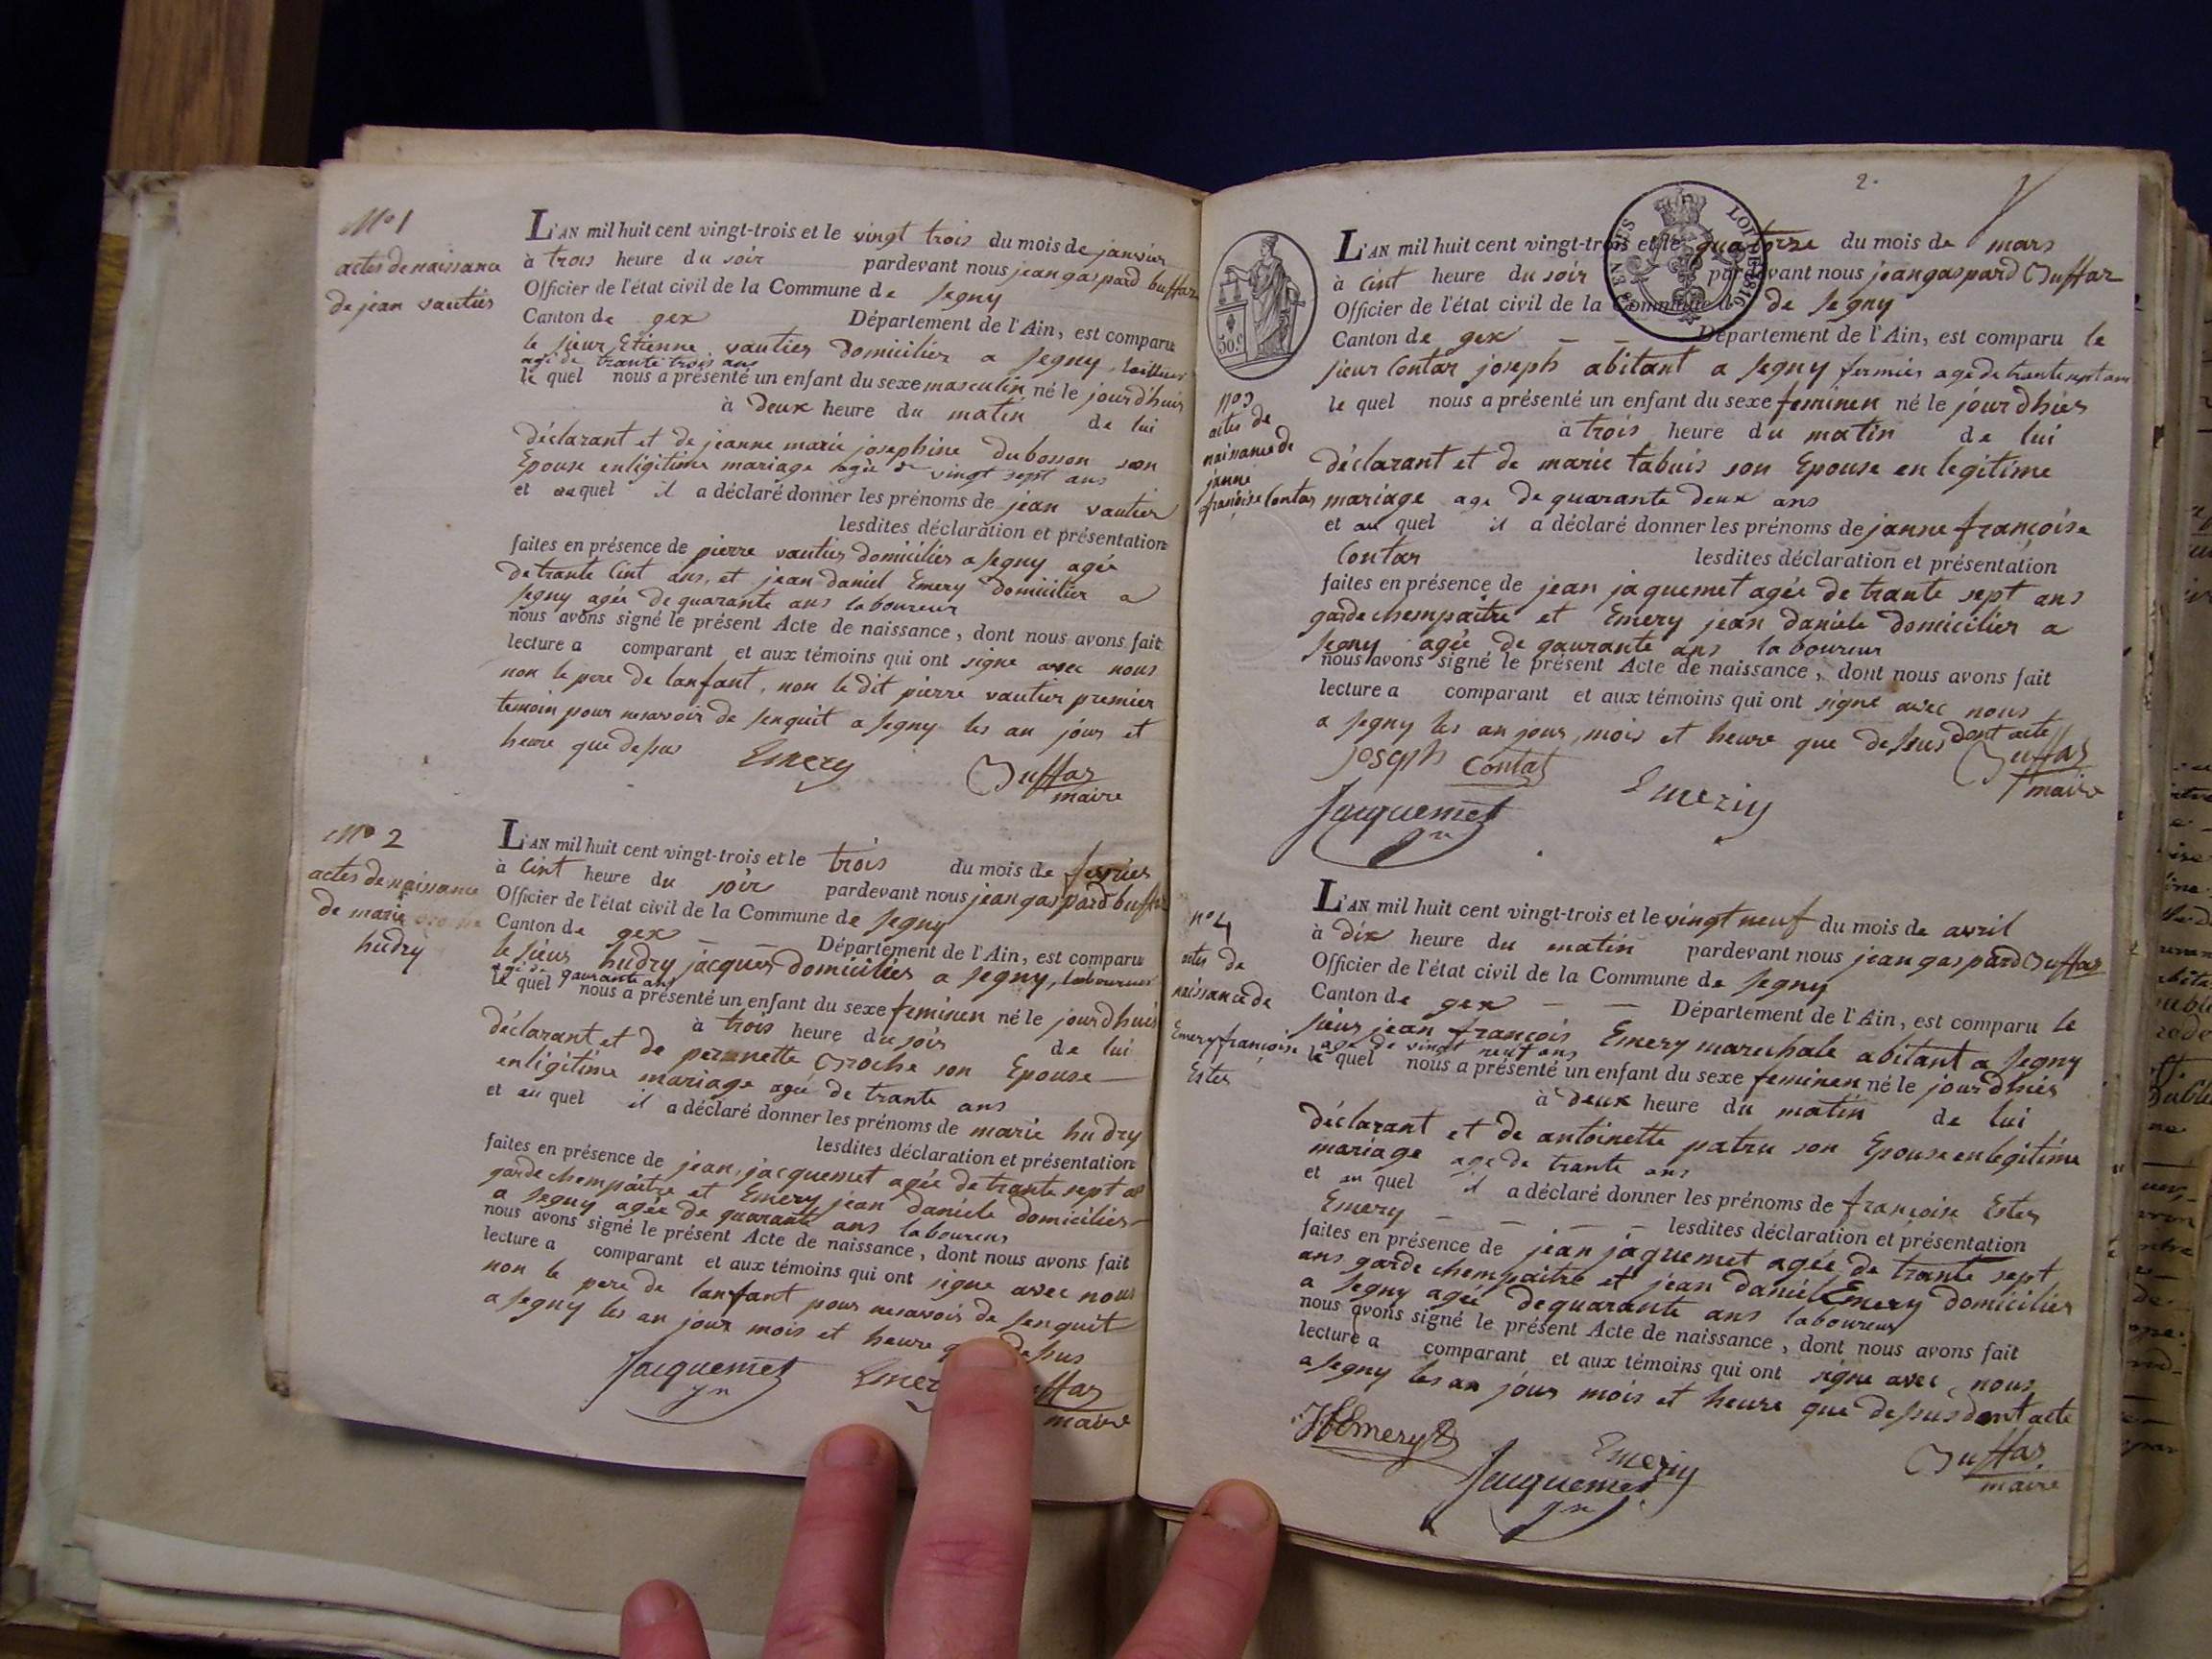 N° 1
actes de naissance
de jean vautier
L'AN mil huit cent vingt-trois et le vingt trois du mois de janvier
à trois heure du soir pardevant nous jean gaspard buffaz
Officier de l'état civil de la Commune de Segny
Canton de gex Département de l'Ain, est comparu
le sieur Etienne vautier domicilier a Segny,
agé de trante trois ans
le quel nous a présenté un enfant du sexe masculin né le jourdhuis
à deux heure du matin de lui
déclarant et de jeanne marie josephine dubosson son
Epouse enligitime mariage agée de vingt sept ans
et auquel il a déclaré donner les prénoms de jean vautier
lesdites déclaration et présentation
faites en présence de pierre vautier domicilier a Segny agée
de trante Cint ans, et jean daniel Emery domicilier a
Segny agée de quarante ans laboureur
nous avons signé le présent Acte de naissance, dont nous avons fait
lecture a comparant et aux témoins qui ont signe avec nous
non le pere de lanfant, non le dit pierre vautier premier
temoin pour nesavoir de Senquit a Segny les an jour et
heure que desus
Emery Buffaz
maire
N° 2
actes de naissance
de marie
hudry
L'AN mil huit cent vingt-trois et le trois du mois de fevrier
à Cint heure du soir pardevant nous jean gaspard buffaz
Officier de l'état civil de la Commune de Segny
Canton de gex Département de l'Ain, est comparu
le sieur hudry jacques domicilier a Segny, laboureur
agé de qaurante ans
le quel nous a présenté un enfant du sexe feminen né le jourdhuis
à trois heure du soir de lui
déclarant et de pernette Croche son Epouse
enligitime mariage agée de trante ans
et au quel il a déclaré donner les prénoms de marie hudry
lesdites déclaration et présentation
faites en présence de jean jacquemet agée de trante sept
garde chempaitre et Emery jean daniele domicilier
a Segny agée de quarante ans laboureur
nous avons signé le présent Acte de naissance, dont nous avons fait
lecture a comparant et aux témoins qui ont signe avec nous
non le pere de lanfant pour nesavoir de Senquit
a Segny les an jour mois et heure desus
Jacquemet
maire
2.
L'AN mil huit cent vingt-trois et le quatorze du mois de mars
à Cint heure du soir pardevant nous jean gaspard Buffaz
Officier de l'état civil de la Commune de Segny
Canton de gex Département de l'Ain, est comparu le
sieur Contat joseph abitant a Segny fermier age de trante sept ans
50 c
N° 3
actes de
naissance de
janne
françoise Contat
le quel nous a présenté un enfant du sexe feminen né le jourdhies
à trois heure du matin de lui
déclarant et de marie tabuis son Epouse en legitime
mariage age de quarante deux ans
et au quel il a déclaré donner les prénoms de janne françoise
Contat lesdites déclaration et présentation
faites en présence de jean jaquemet agée de trante sept ans
garde chempaitre et Emery jean daniele domicilier a
Segny agée de qaurante ans laboureur
nous avons signé le présent Acte de naissance, dont nous avons fait
lecture a comparant et aux témoins qui ont signe avec nous
a Segny les an jour, mois et heure que desus dont acte
joseph Contat Emeriy Buffaz
maire
Jaquemet
n° 4
actes de
naissance de
Emery françoise
Ester
L'AN mil huit cent vingt-trois et le vingt neuf du mois de avril
à dix heure du matin pardevant nous jean gaspard Buffaz
Officier de l'état civil de la Commune de Segny
Canton de gex Département de l'Ain, est comparu le
sieur jean françois Emery marechale abitant a Segny
age de vingt neuf ans
le quel nous a présenté un enfant du sexe feminen né le jourdhies
à deux heure du matin de lui
déclarant et de antoinette patru son Epouse enlegitime
mariage age de trante ans
et au quel il a déclaré donner les prénoms de françoise Ester
Emery lesdites déclaration et présentation
faites en présence de jean jaquemet agée de trante sept
ans garde chempaitre et jean daniel Emery domicilier
a Segny agée de quarante ans laboureur
nous avons signé le présent Acte de naissance, dont nous avons fait
lecture a comparant et aux témoins qui ont signe avec nous
a Segny les an jour mois et heure que desus dont acte
Emeriy Buffaz
Jacquemet maire